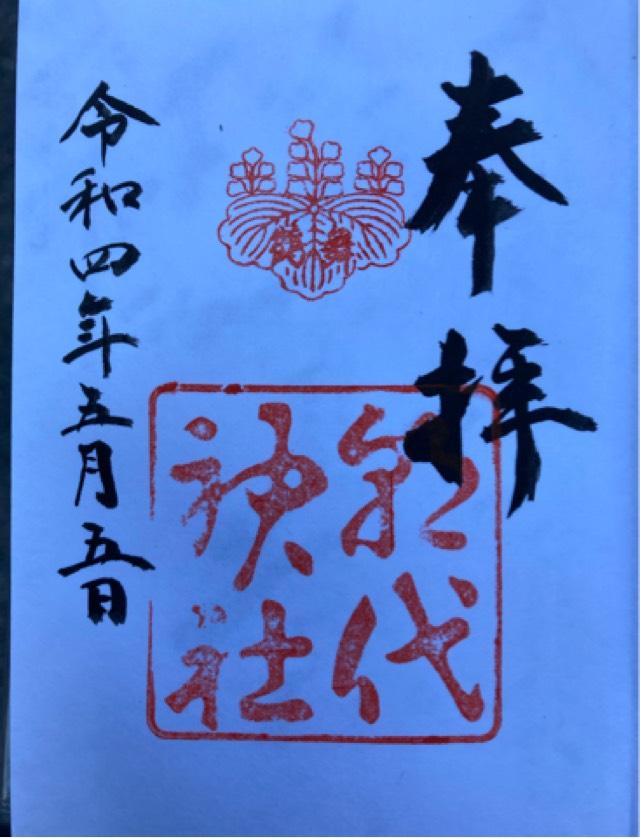 奉拝
鶴舞
代
神社
令和四年五月五日